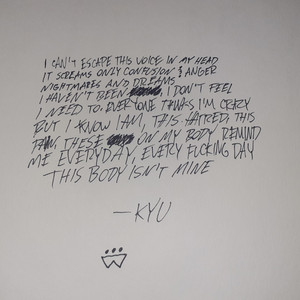 I CAN'T ESCAPE THIS VOICE IN MY HEAD
IT SCREAMS ONLY CONFUSION & ANGER
NIGHTMARES AND DREAMS
I HAVEN'T BEEN I DON'T FEEL
I NEED TO. EVERYONE THINKS I'M CRAZY
BUT I KNOW I AM, THIS HATRED, THIS
PAIN, THESE ON MY BODY REMIND
ME EVERYDAY, EVERY FUCKING DAY
THIS BODY ISN'T MINE
—KYU